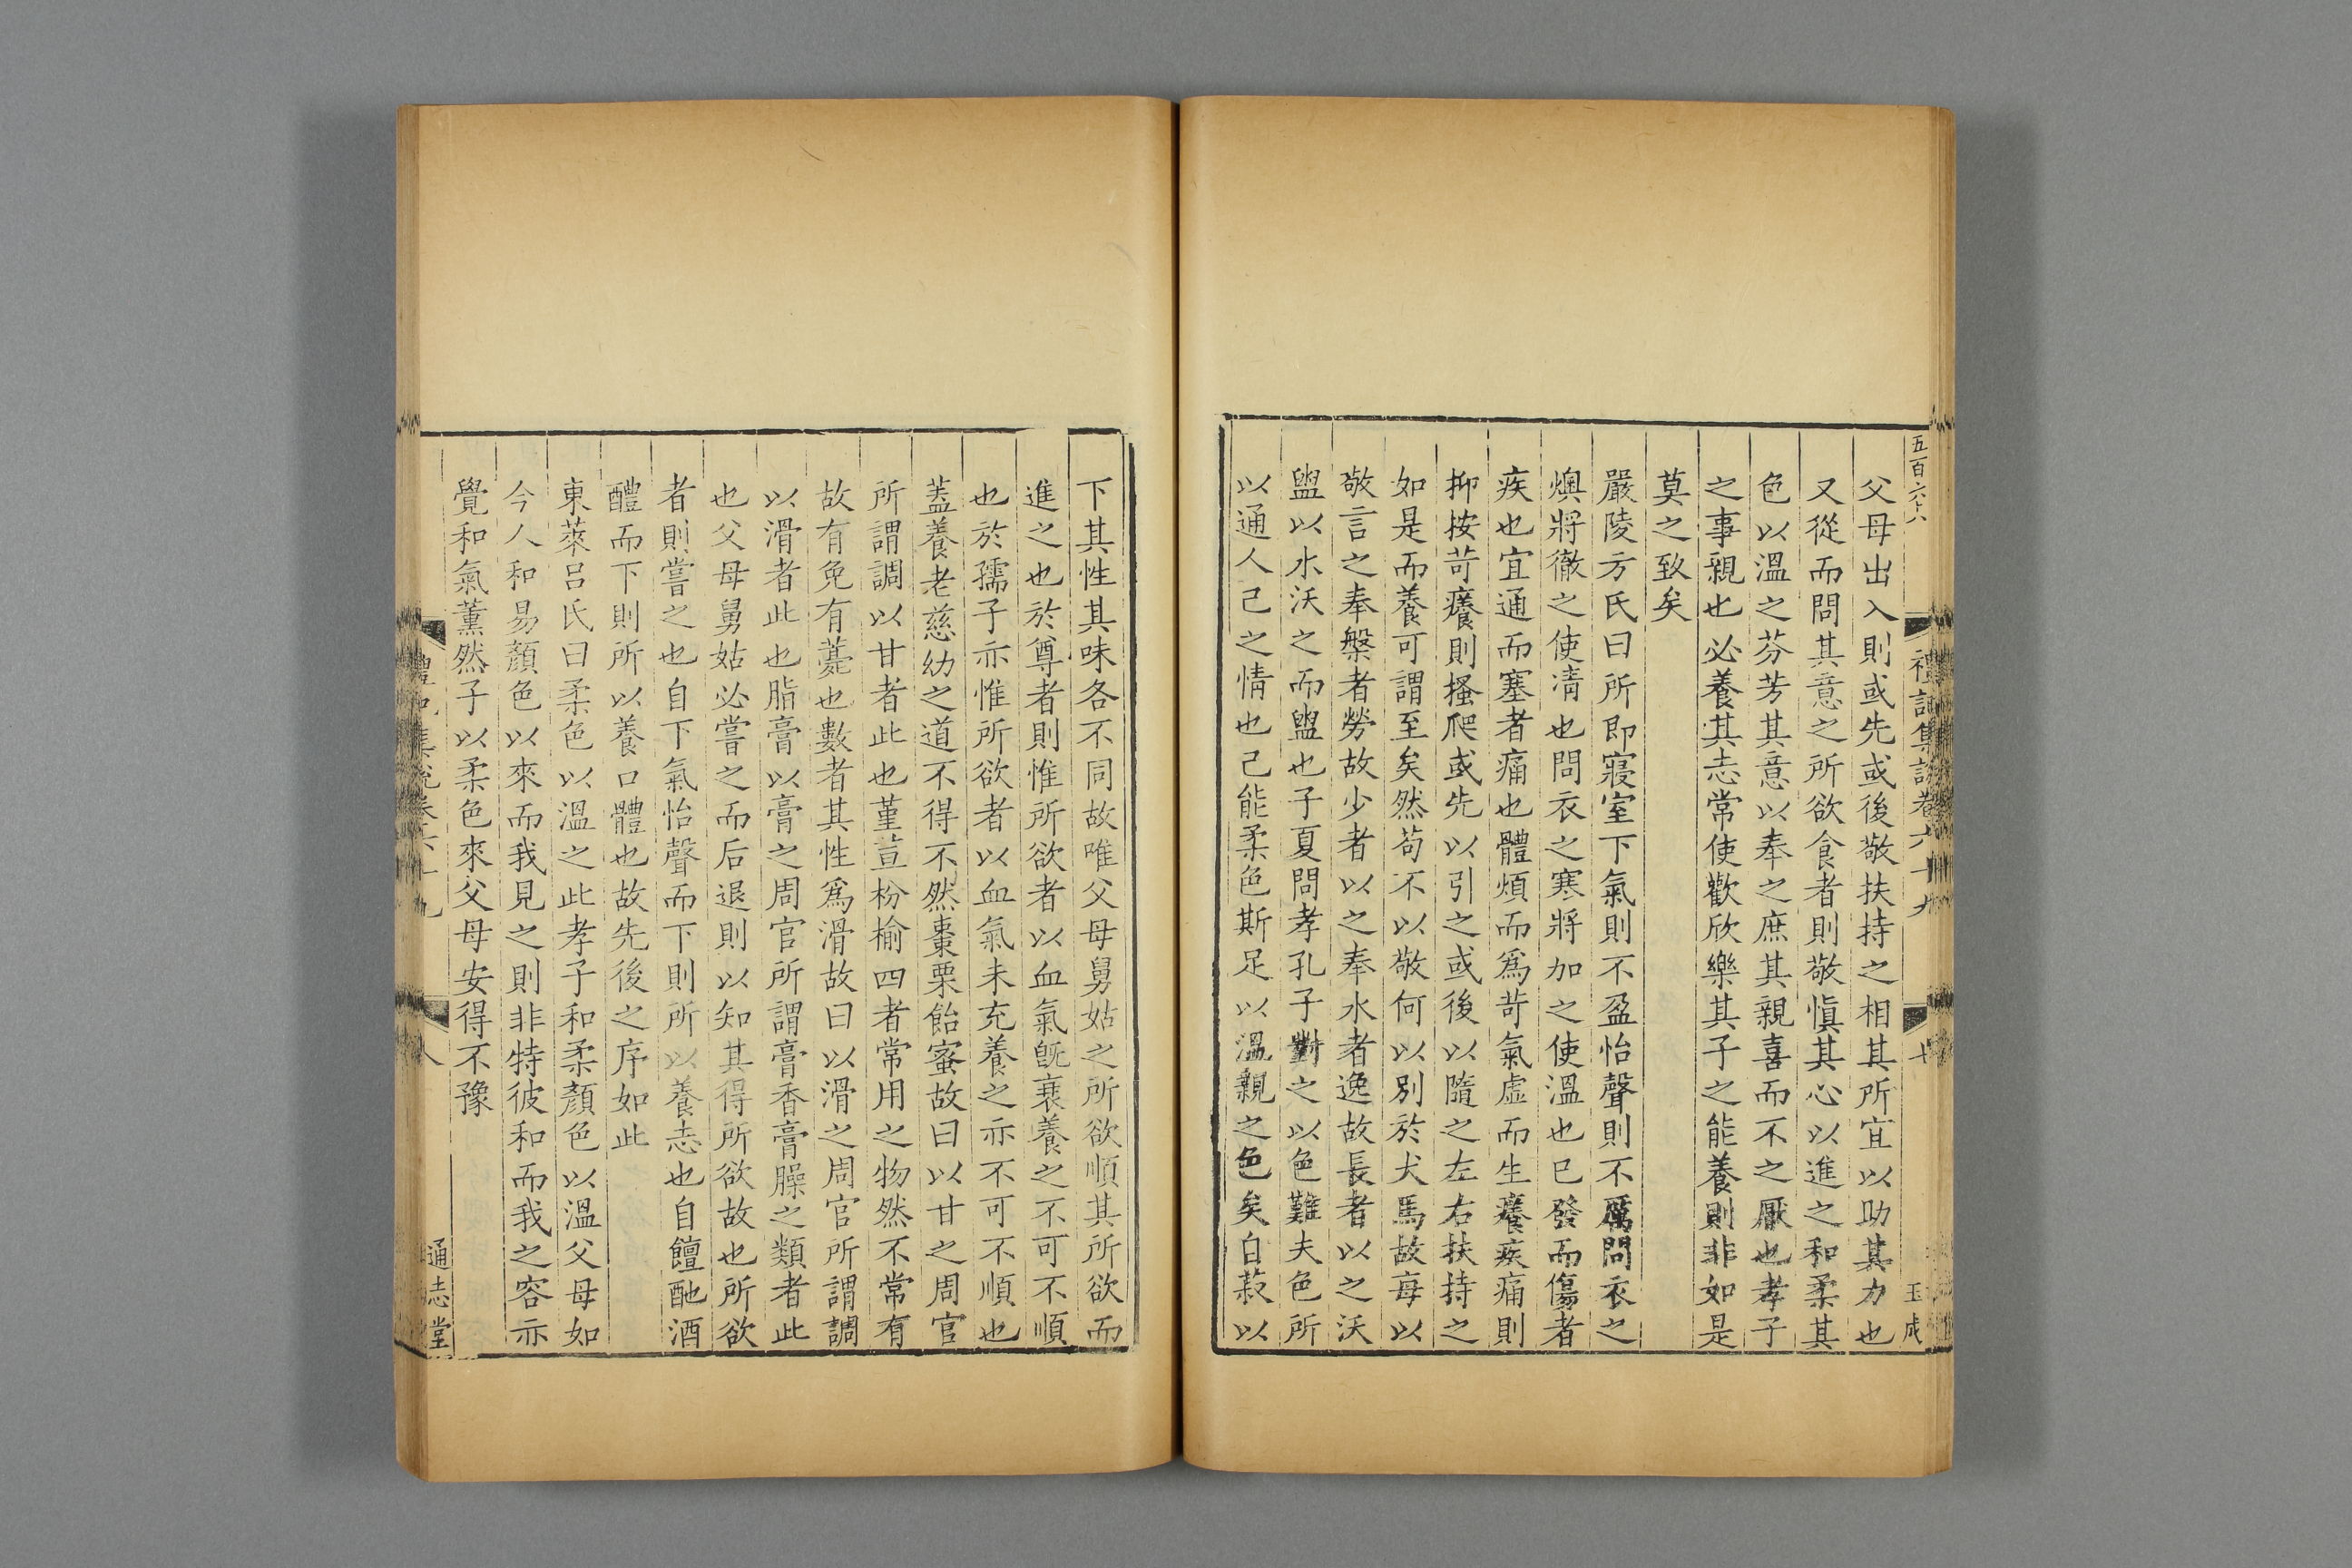 五百六十八
禮記集說卷六十九
七
玉成
父母出入則或先或後敬扶持之相其所宜以助其力也
又從而問其意之所欲食者則敬愼其心以進之和柔其
色以溫之芬芳其意以奉之庶其親喜而不之厭也孝子
之事親也必養其志常使歡欣樂其子之能養則非如是
莫之致矣
嚴陵方氏曰所即寢室下氣則不盈怡聲則不厲問衣之
燠將徹之使凊也問衣之寒將加之使溫也已發而傷者
疾也宜通而塞者痛也體煩而爲苛氣虛而生癢疾痛則
抑按苛癢則搔爬或先以引之或後以隨之左右扶持之
如是而養可謂至矣然苟不以敬何以別於犬馬故每以
敬言之奉槃者勞故少者以之奉水者逸故長者以之沃
盥以水沃之而盥也子夏問孝孔子對之以色難夫色所
以通人己之情也己能柔色斯足以溫親之色矣白菽以
下其性其味各不同故唯父母舅姑之所欲順其所欲而
進之也於尊者則惟所欲者以血氣旣衰養之不可不順
也於孺子亦惟所欲者以血氣未充養之亦不可不順也
蓋養老慈幼之道不得不然棗栗飴蜜故曰以甘之周官
所謂調以甘者此也堇荁枌榆四者常用之物然不常有
故有免有薧也數者其性爲滑故曰以滑之周官所謂調
以滑者此也脂膏以膏之周官所謂膏香膏臊之類者此
也父母舅姑必嘗之而后退則以知其得所欲故也所欲
者則嘗之也自下氣怡聲而下則所以養志也自饘酏酒
醴而下則所以養口體也故先後之序如此
東萊呂氏曰柔色以溫之此孝子和柔顏色以溫父母如
今人和易顏色以來而我見之則非特彼和而我之容亦
覺和氣薰然子以柔色來父母安得不豫
禮記集說卷六十九
八
通志堂